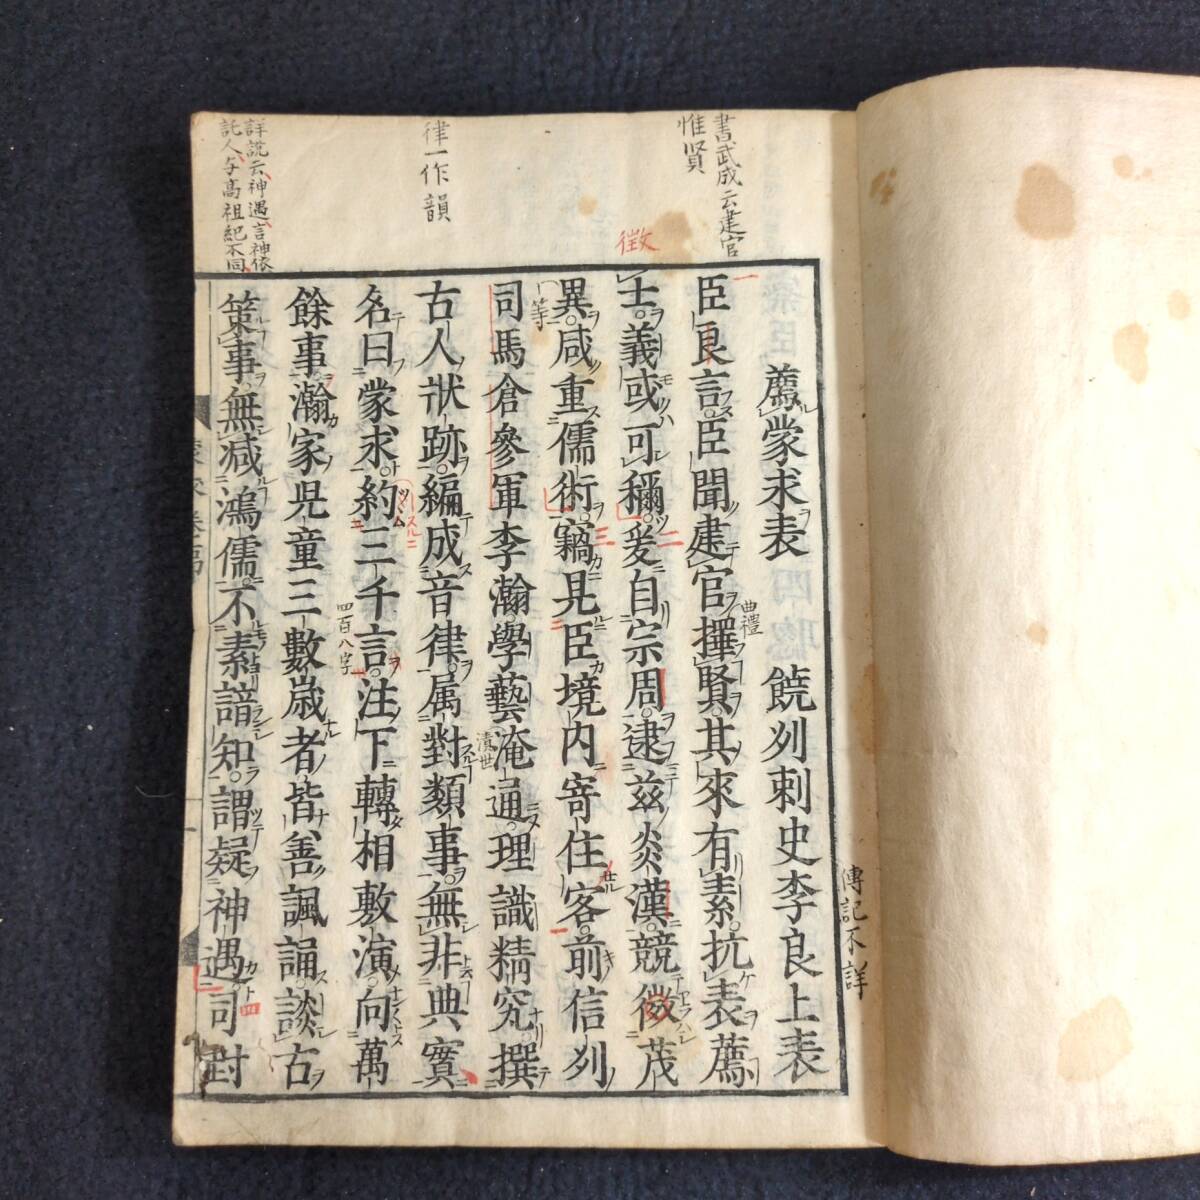 薦蒙求表　饒列刺史李良上表
臣良言臣聞建官擇賢其來有素抗表薦
士義或可稱爰自宗周逮茲炎漢競徴茂
異咸重儒術竊見臣境内寄住客前信列
司馬倉參軍李瀚學藝淹通理識精究撰
古人狀跡編成音律属對類事無非典實
名曰蒙求約三千言注下轉相敷演向萬
餘事瀚家皃童三數歳者皆善諷誦談古
策事無減鴻儒不素諳知謂疑神遇司封
書武成云建官
惟賢
徴
律一作韻
詳説云神遇言神依
託人与高祖紀不同
傳記不詳
曲禮
等
四百八字